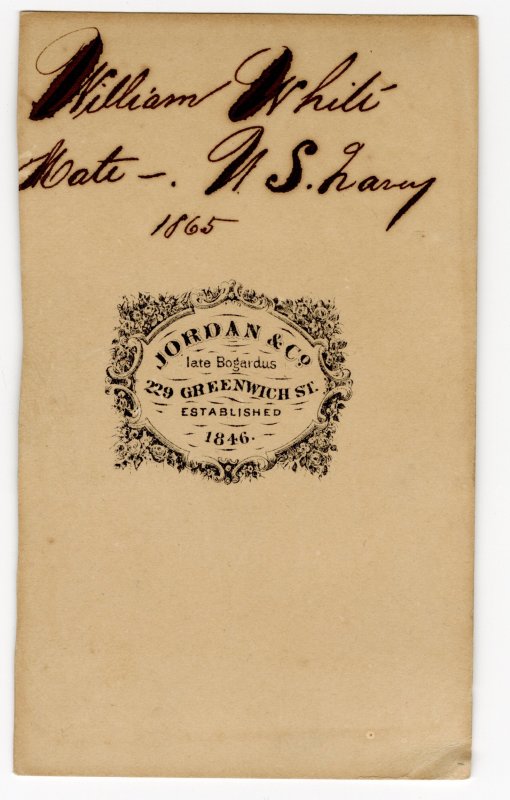 William White
Mate -. U S. Navy
1865
JORDAN & Co.
late Bogardus
229 GREENWICH ST.
ESTABLISHED
1846.